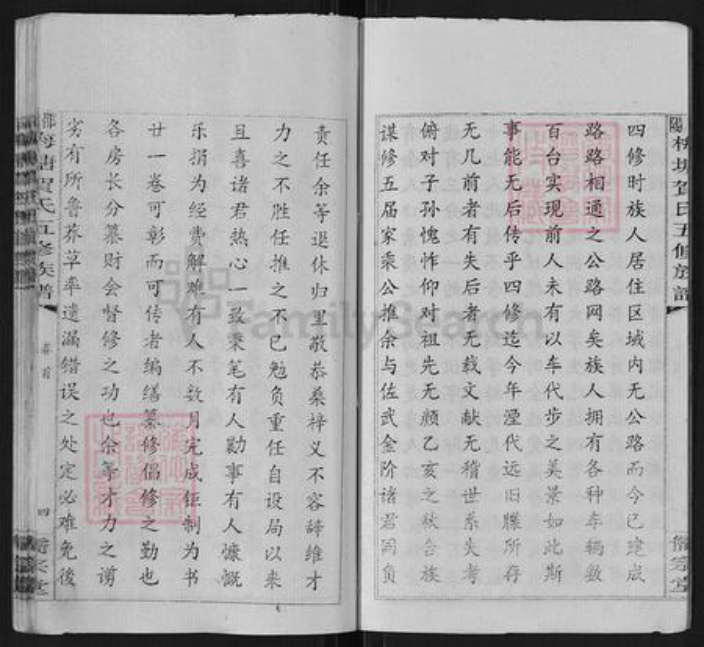 四修时族人居住区域内无公路而今已建成
路路相通之公路网矣族人拥有各种车辆数
百台实现前人未有以车代步之美景如此斯
事能无后传乎四修迄今年湮代远旧牒所存
无几前者有失后者无载文献无稽世系失考
俯对子孙愧怍仰对祖先无颜乙亥之秋合族
谋修五届家乘公推余与佐武金阶诸君同负
责任余等退休归里敬恭桑梓义不容辞维才
力之不胜任推之不已勉负重任自设局以来
且喜诸君热心一致秉笔有人勷事有人慷慨
乐捐为经费解难有人不数月完成钜制为书
廿一卷可彰而可传者编缮纂修倡修之勤也
各房长分纂财会督修之功也余等才力之谫
劣有所鲁莽草率遗漏错误之处定必难免后
梅塘贺氏五修族谱
卷首
四
FamilySearch